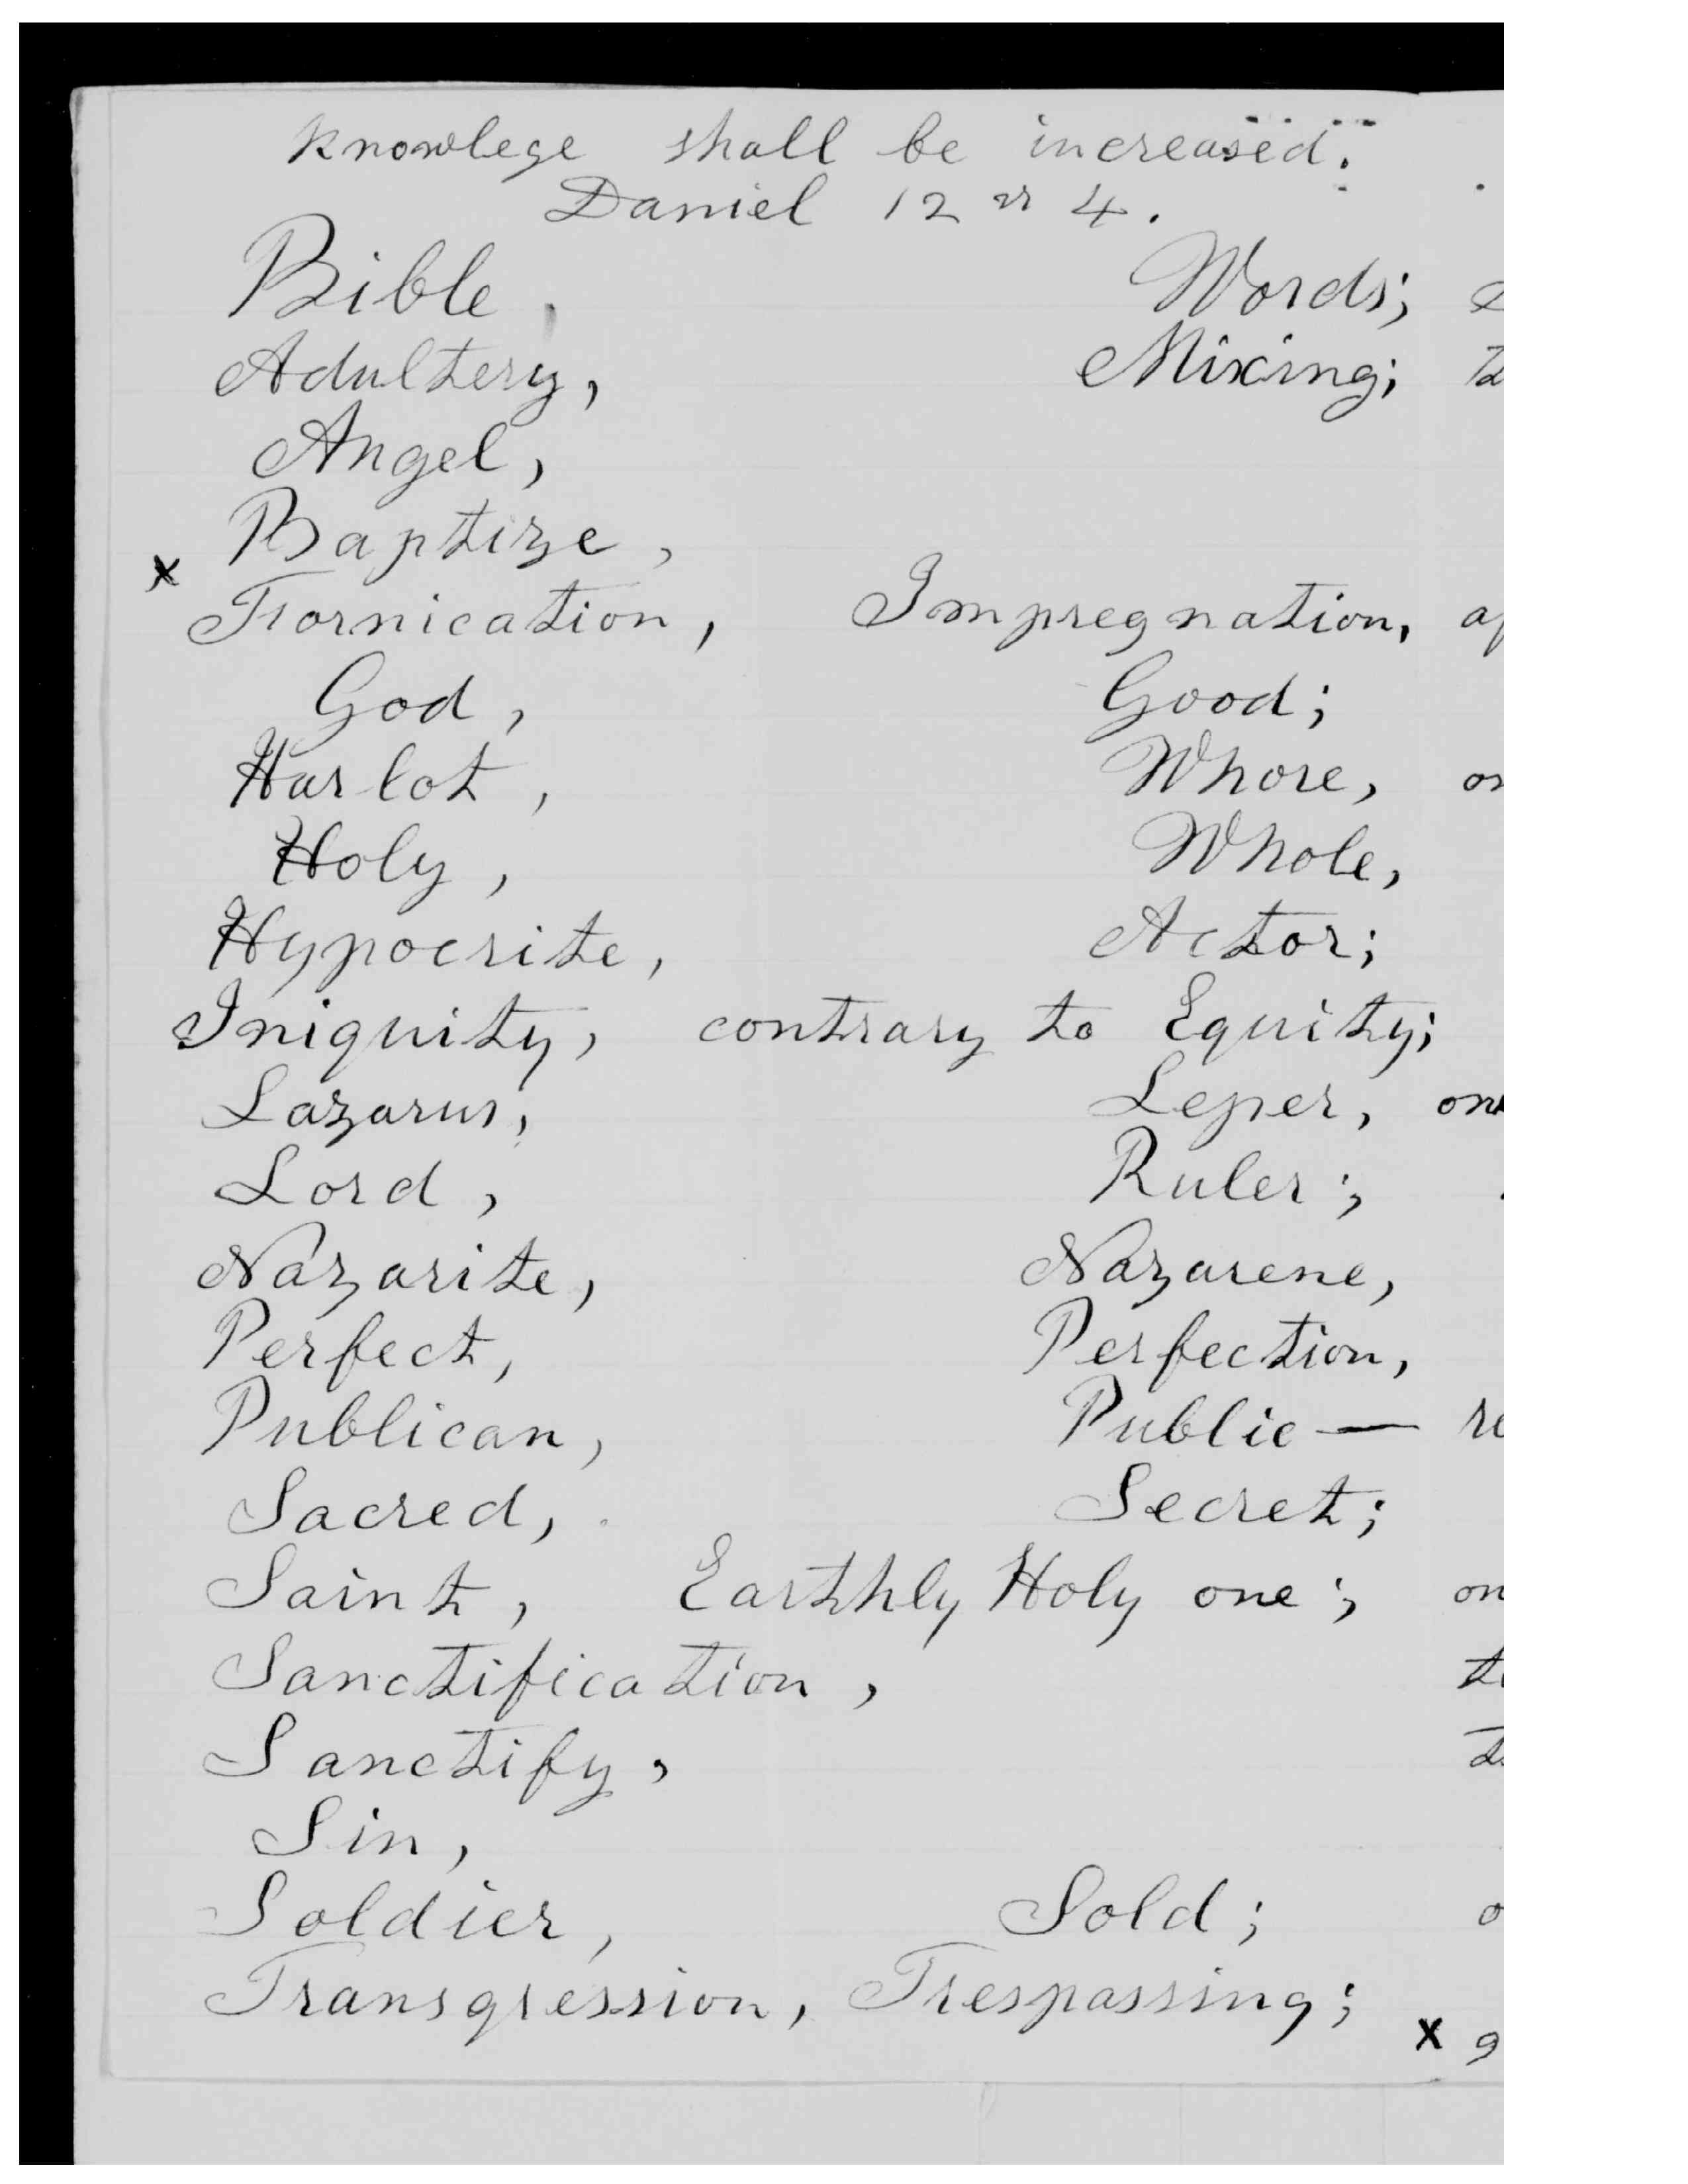 knowlege shall be increased.
Daniel 12 vs 4.
Bible, Words;
Adultery, Mixing;
Angel,
Baptize,
x Fornication, Impregnation,
God, Good;
Harlot, Whore, or
Holy, Whole,
Hypocrite, Actor;
Iniquity, contrary to Equity;
Lazarus, Leper, one
Lord, Ruler;
Nazarite, Nazarene,
Perfect, Perfection,
Publican, Public —
Sacred, Secret;
Saint, Earthly Holy one; on
Sanctification,
Sanctify,
Sin,
Soldier, Sold;
Transgression, Trespassing;
x